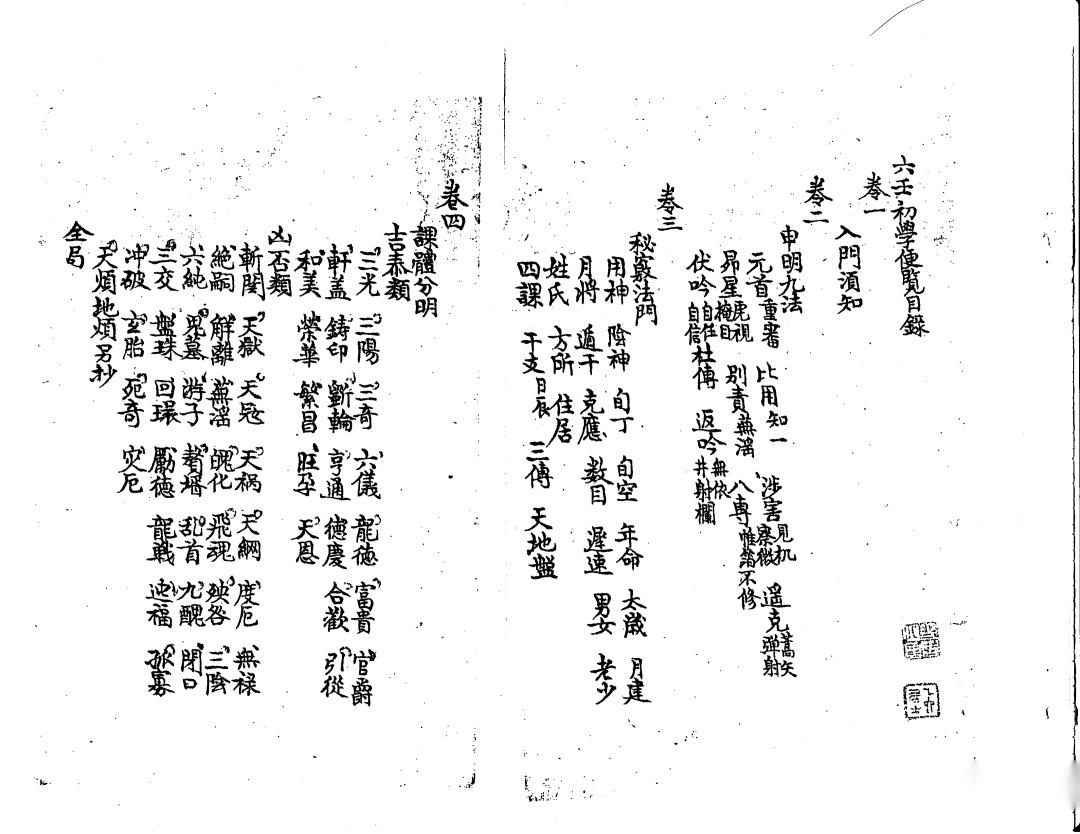 六壬初學便覽目錄
卷一
入門須知
卷二
申明九法
元首 重審 比用 知一 涉害 見机 察微 遥克 蒿矢 彈射
昴星 虎視 掩目 別責 蕪滛 八專 帷簿不修
伏吟 自任 自信 杜傳 返吟 無依 井射欄
卷三
秘竅法門
用神 陰神 旬丁 旬空 年命 太歲 月建
月將 遁干 克應 数目 遲速 男女 老少
姓氏 方所 住居
四課 干支 日辰 三傳 天地盤
卷四
課體分明
吉泰類
三光 三陽 三奇 六儀 龍徳 富貴 官爵
軒盖 鋳印 斵輪 亨通 徳慶 合歡 引從
和美 榮華 繁昌 旺孕 天恩
凶否類
斬関 天獄 天㓂 天祸 天網 度厄 無禄
絕嗣 解離 蕪滛 魄化 飛魂 殃咎 三陰
六純 鬼墓 游子 贅壻 乱首 九醜 閉口
三交 盤珠 回環 勵徳 龍戰 迎福 孤寡
冲破 玄胎 死奇 灾厄
天煩地煩另抄
全局